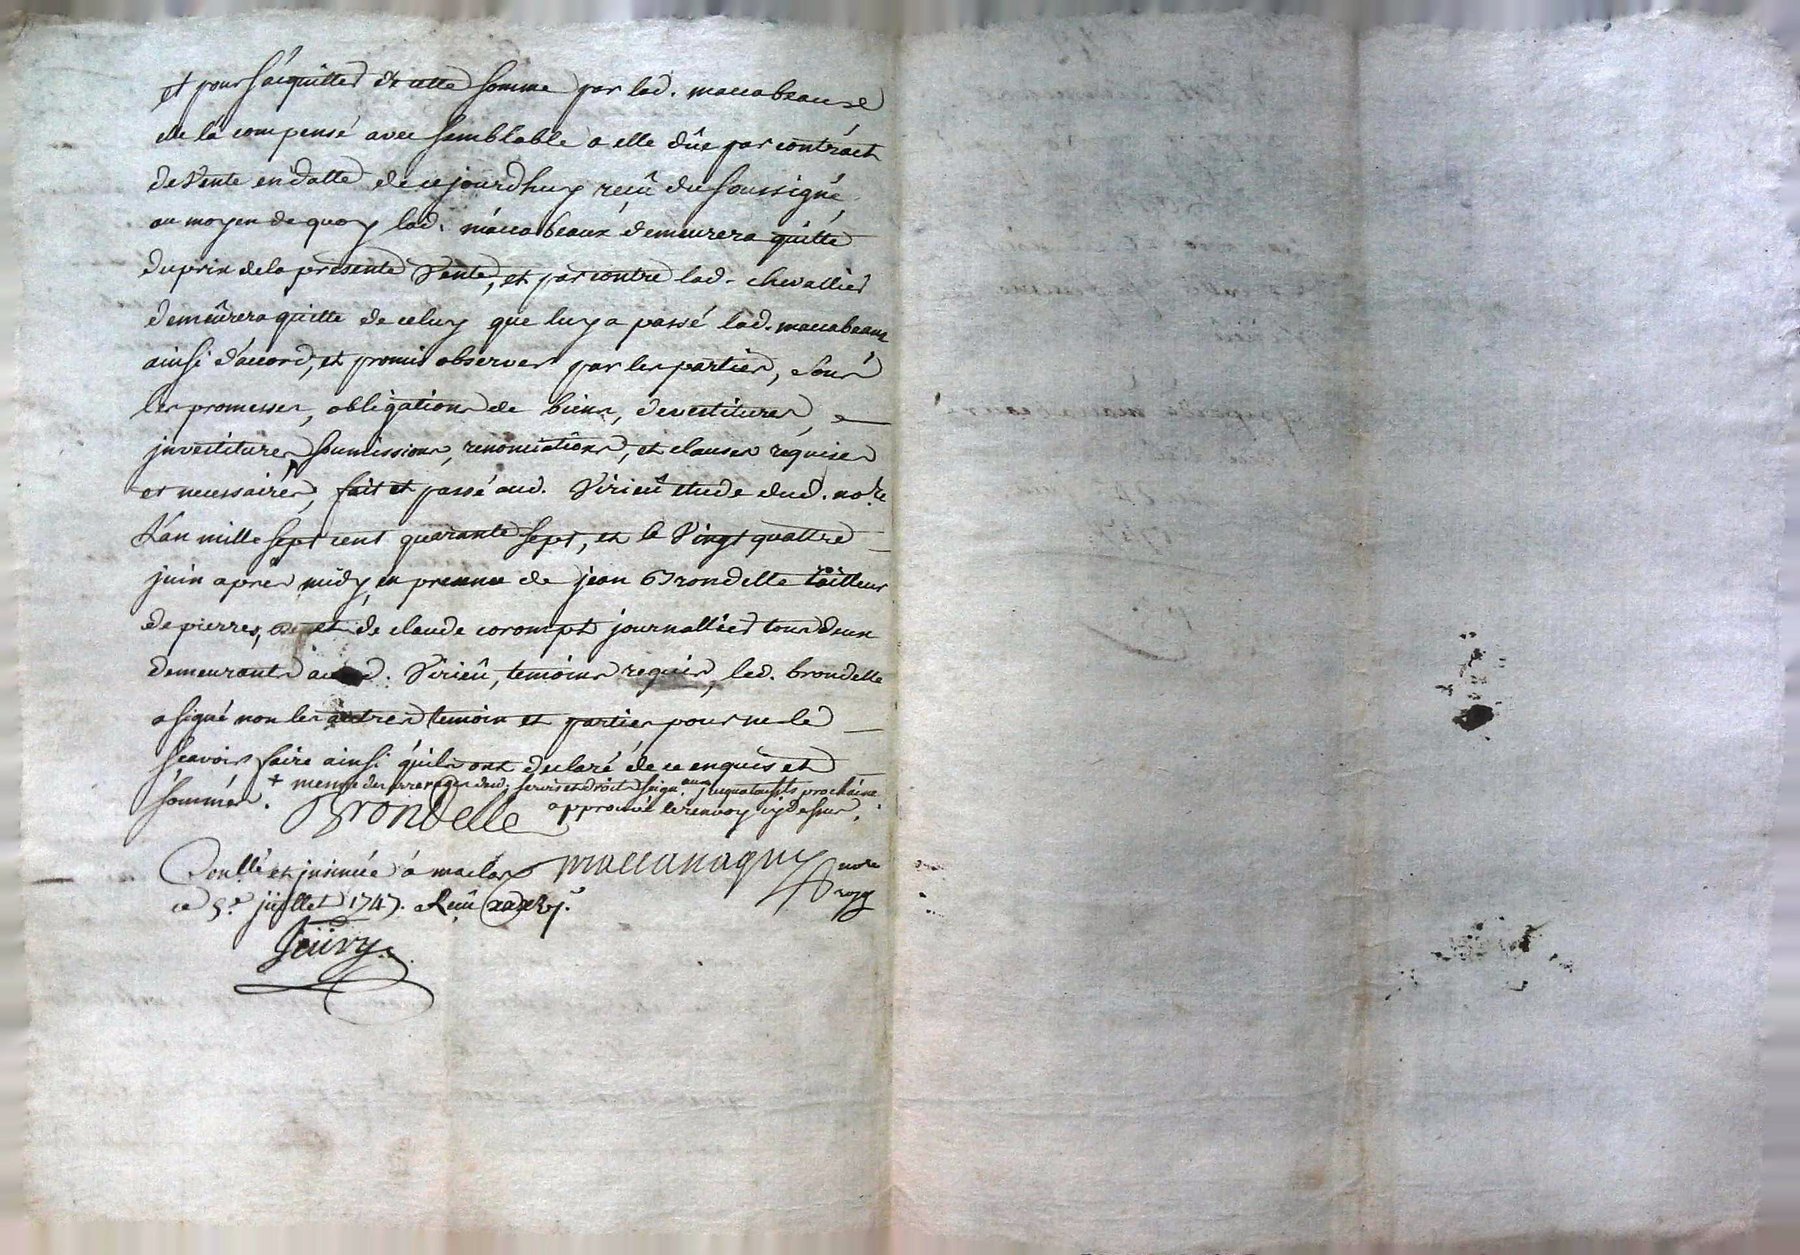 et pour s'acquitter de cette somme par lad. maccabeaux
elle la compensé avec semblable a elle dûe par contráct
de Vente en datte de cejourdhuy reçû du soussigné,
au moyen de quoy lad. máccabeaux demeurera quitte
du prix de la presente Vente, et par contre lad. chevallier
demeûrera quitte de celuy que luy a passé lad. maccabeaux
ainsi d'accord, et promis observer par les parties, sous
les promesses, obligations de biens, devestitures,
jnvestitures soumissions, renonciâtions, et clauses requises
et necessaires, fait et passé aud. Virieû etude dud. no.re
L'an mille sept cent quarante sept, et le Vingt quattre
juin apres midy, en presence de jean Brondelle tailleur
de pierres, et de claude corompt journallier tous deux
demeurants aud. Virieû, temoins requis, led. brondelle
a signé non les autres temoin et parties pour ne le
scavoir faire ainsi qu'ils ont declaré de ce enquis et
+ mesme des arrerages desd. servis et droits seign.aux jusquatousts prochaine
sommés. Brondelle approuvé le renvoy cy dessus.
Conllé et jnsinuée á maclas maccanaquy no.re
ce 5.e juillet 1747. Reçû roy
Jeüry